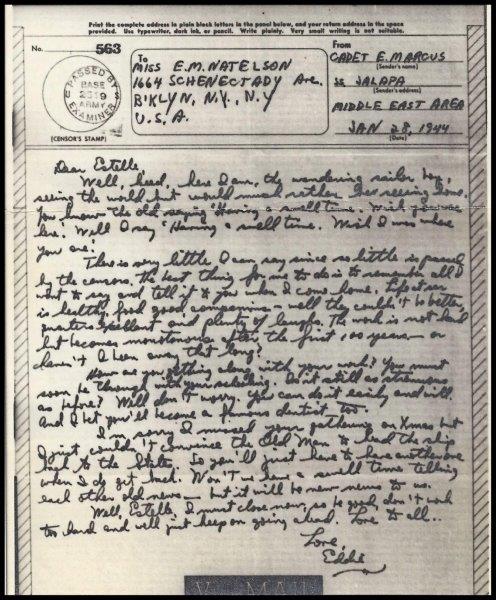 Print the complete address in plain block letters in the panel below, and your return address in the space
provided. Use typewriter, dark ink, or pencil. Write plainly. Very small writing is not suitable.
No. 563
PASSED BY
BASE
2519
ARMY
EXAMINER
(CENSOR'S STAMP)
To
MISS E.M. NATELSON
1664 SCHENECTADY Ave.
B'KLYN, N.Y., N.Y
U.S.A.
From
CADET E. MARCUS
(Sender's name)
SS JALAPA
(Sender's address)
MIDDLE EAST AREA
JAN 28, 1944
(Date)
Dear Estelle,
Well, here I am, the wandering sailor boy,
seeing the world but would much rather be seeing home.
You know the old saying "Having a swell time. Wish you were
here." Well I say "Having a swell time. Wish I was where
you are."
There is very little I can say since so little is passed
by the censors. The best thing for me to do is to remember all I
want to say and tell it to you when I come home. Life at sea
is healthy, food good, companions – well they couldn't be better,
quarters excellent and plenty of laughs. The work is not hard
but becomes monotonous after the first 100 years – or
haven't I been away that long?
How are you getting along with your work? You must
soon be through with your schooling. Is it still as strenuous
as before? Well don't worry. You can do it easily and will.
And I bet you'll become a famous dentist too.
I'm sorry I missed your gathering on Xmas but
I just couldn't convince the Old Man to head the ship
back to the States. So you'll just have to have another one
when I do get back. Won't we have a swell time telling
each other old news – but it will be new news to us.
Well, Estelle, I must close now, so be good, don't work
too hard and will just keep on going ahead. Love to all..
Love,
Eddie
V··· MAIL